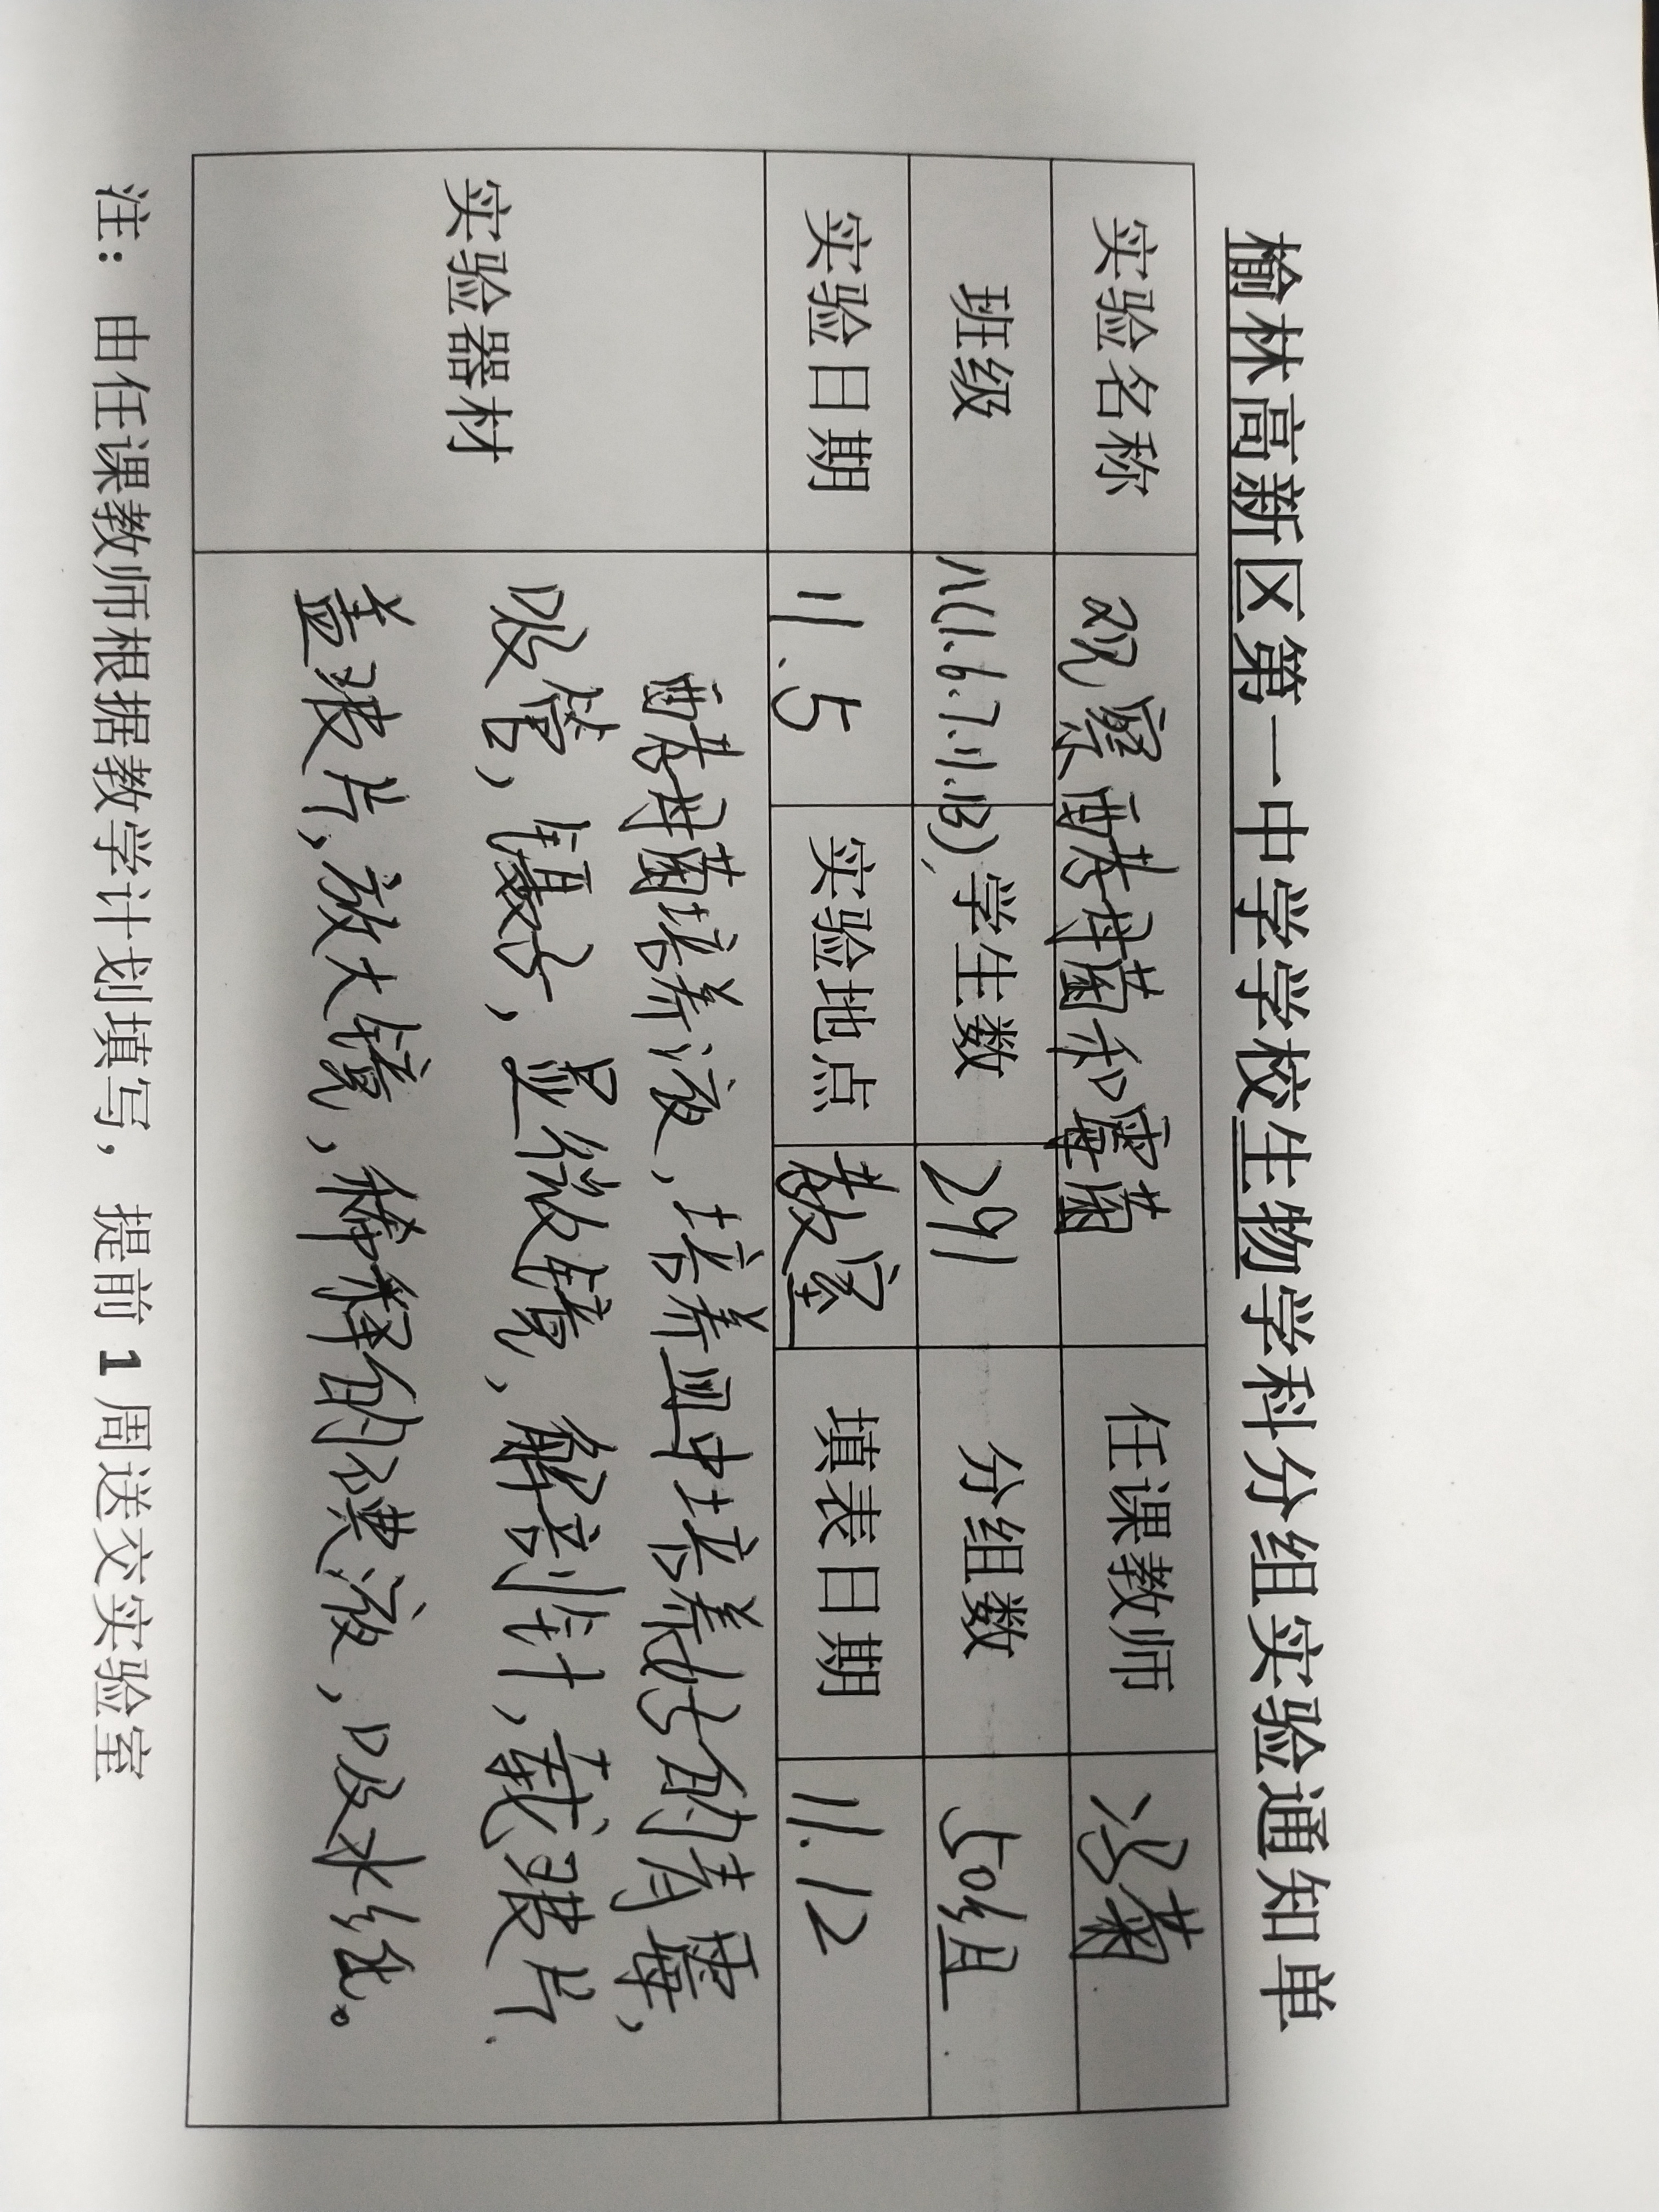 榆林高新区第一中学学校生物学科分组实验通知单
实验名称 观察酵母菌和霉菌 任课教师 冯菊
班级 八(1.6.7.11.13) 学生数 291 分组数 50组
实验日期 11.5 实验地点 教室 填表日期 11.12
实验器材 酵母菌培养液，培养皿中培养好的青霉，
吸管，镊子，显微镜，解剖针，载玻片，
盖玻片，放大镜，稀释的碘液，吸水纸。
注：由任课教师根据教学计划填写，提前 1 周送交实验室